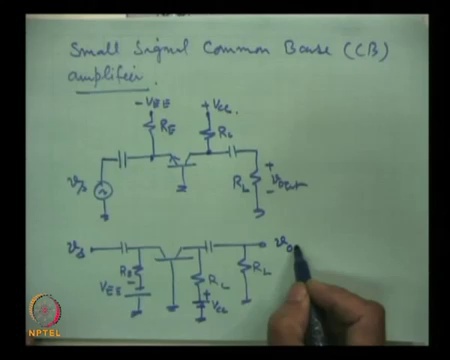 Small Signal Common Base (CB)
amplifier.
- VEE
+ VCC
RE
RL
+
vs
RL
vout
-
vs
vo
RE
RL
VEE
-
RL
+
VCC
NPTEL